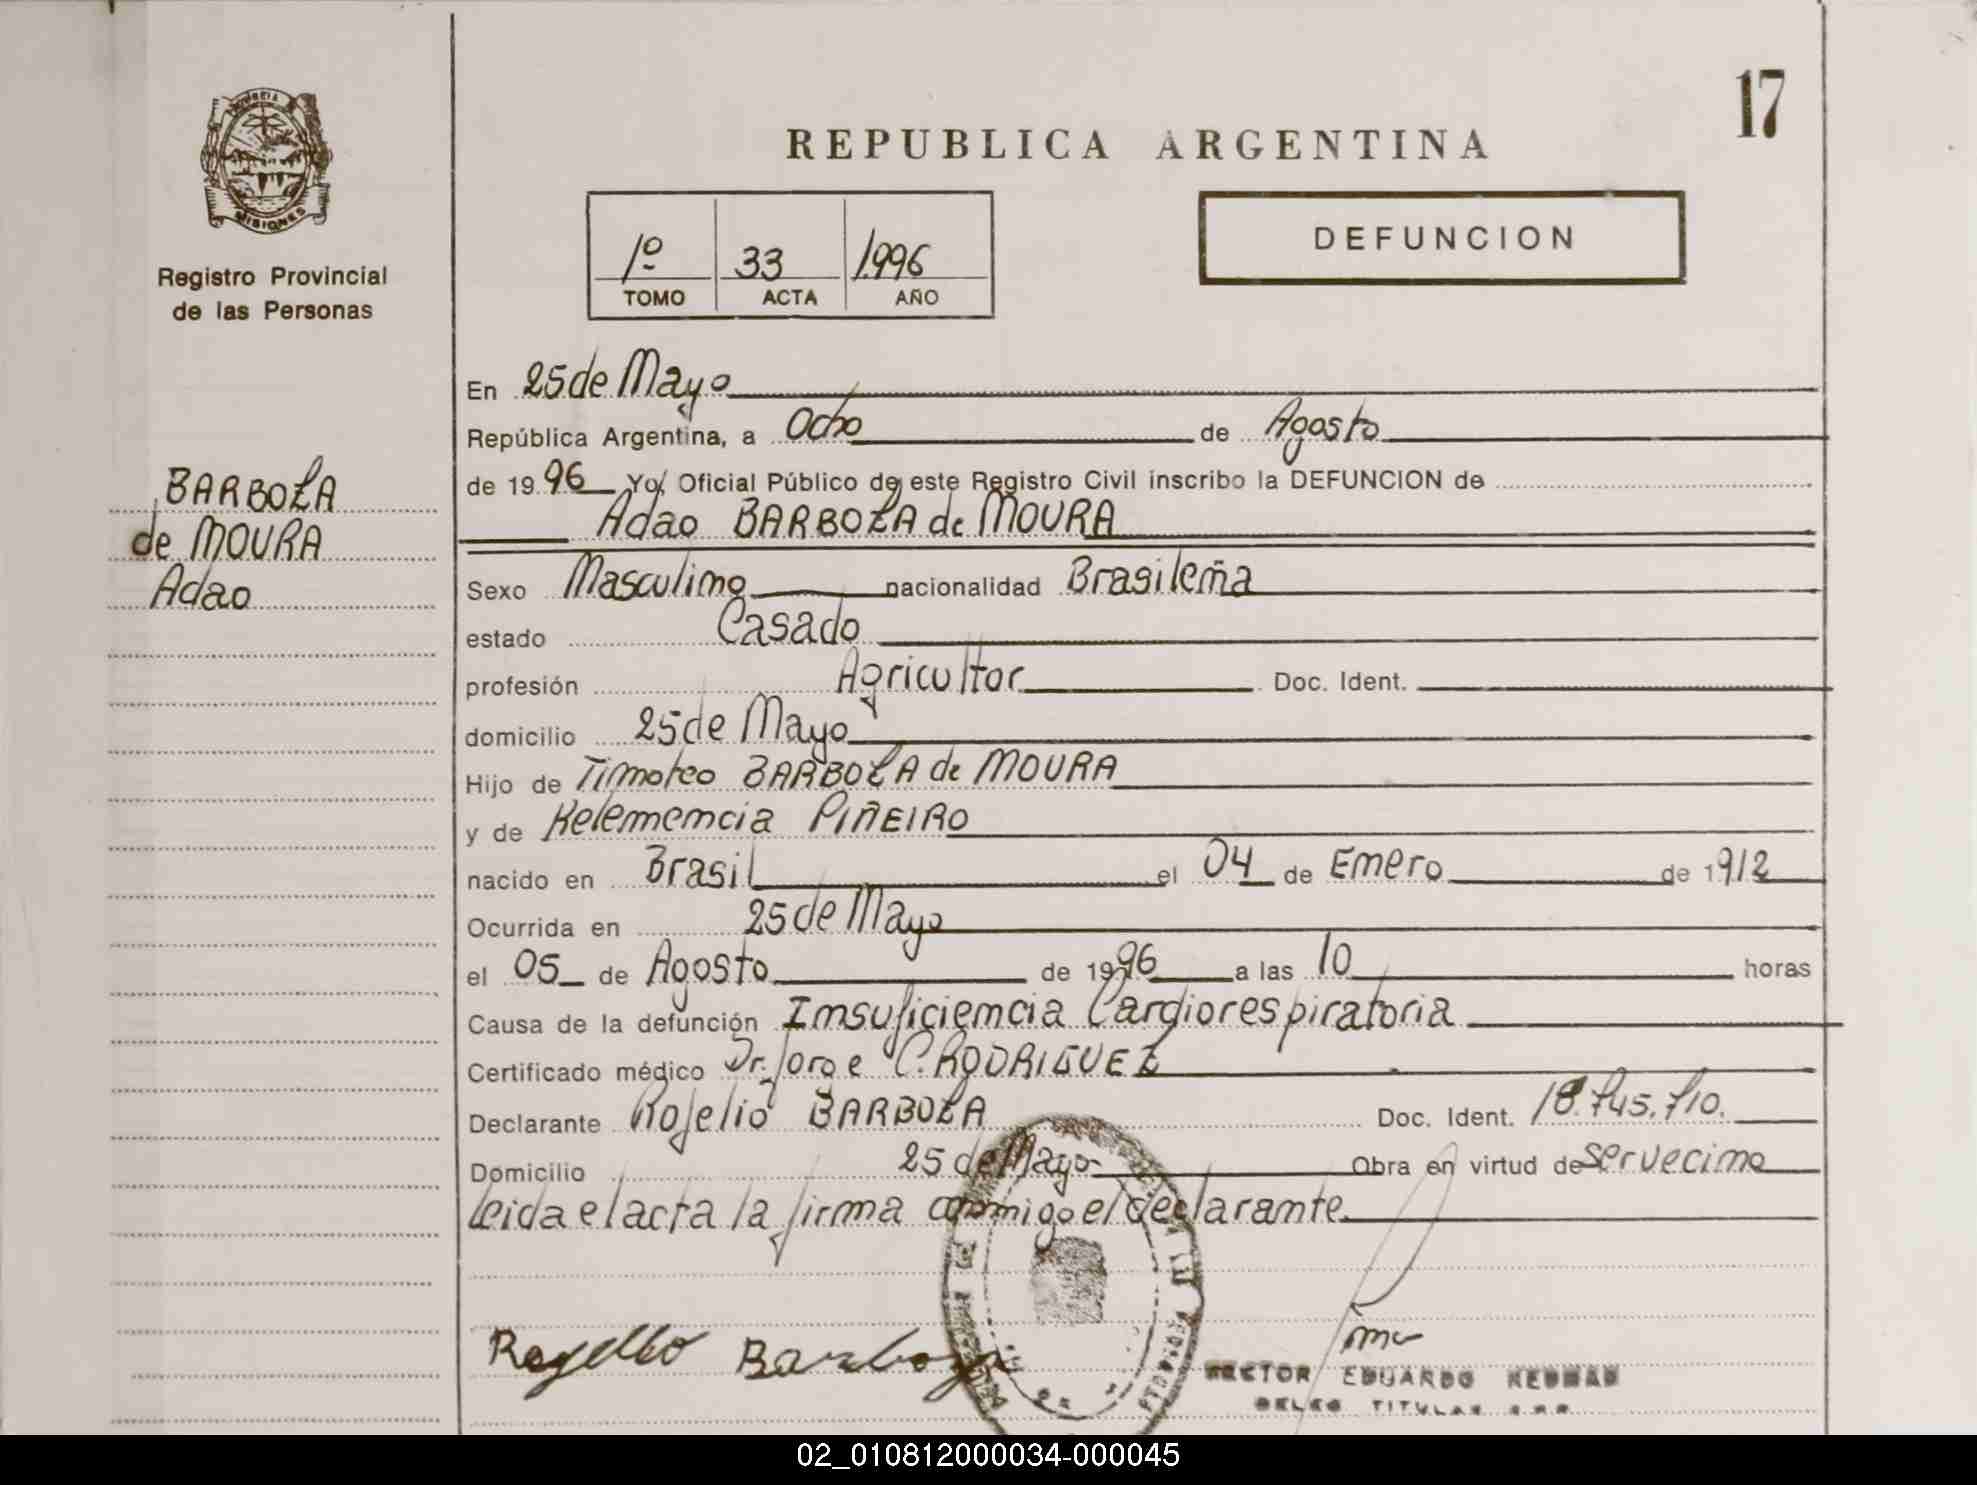 17
REPUBLICA ARGENTINA
MISIONES
Registro Provincial
de las Personas
1º 33 1996
TOMO ACTA AÑO
DEFUNCION
BARBOZA
de MOURA
Adao
En 25 de Mayo
República Argentina, a Ocho de Agosto
de 1996 Yo, Oficial Público de este Registro Civil inscribo la DEFUNCION de
Adao BARBOZA de MOURA
Sexo Masculino nacionalidad Brasileña
estado Casado
profesión Agricultor Doc. Ident.
domicilio 25 de Mayo
Hijo de Timoteo BARBOZA de MOURA
y de Kelemencia PIÑEIRO
nacido en Brasil el 04 de Enero de 1912
Ocurrida en 25 de Mayo
el 05 de Agosto de 1996 a las 10 horas
Causa de la defunción Insuficiencia Cardiorespiratoria
Certificado médico Dr. Jorge C. RODRIGUEZ
Declarante Rojelio BARBOZA Doc. Ident. 18.745.710.
Domicilio 25 de Mayo Obra en virtud de ser vecino
leida el acta la firma conmigo el declarante
Rogelio Barboza
HECTOR EDUARDO
TITULAR
02_010812000034-000045